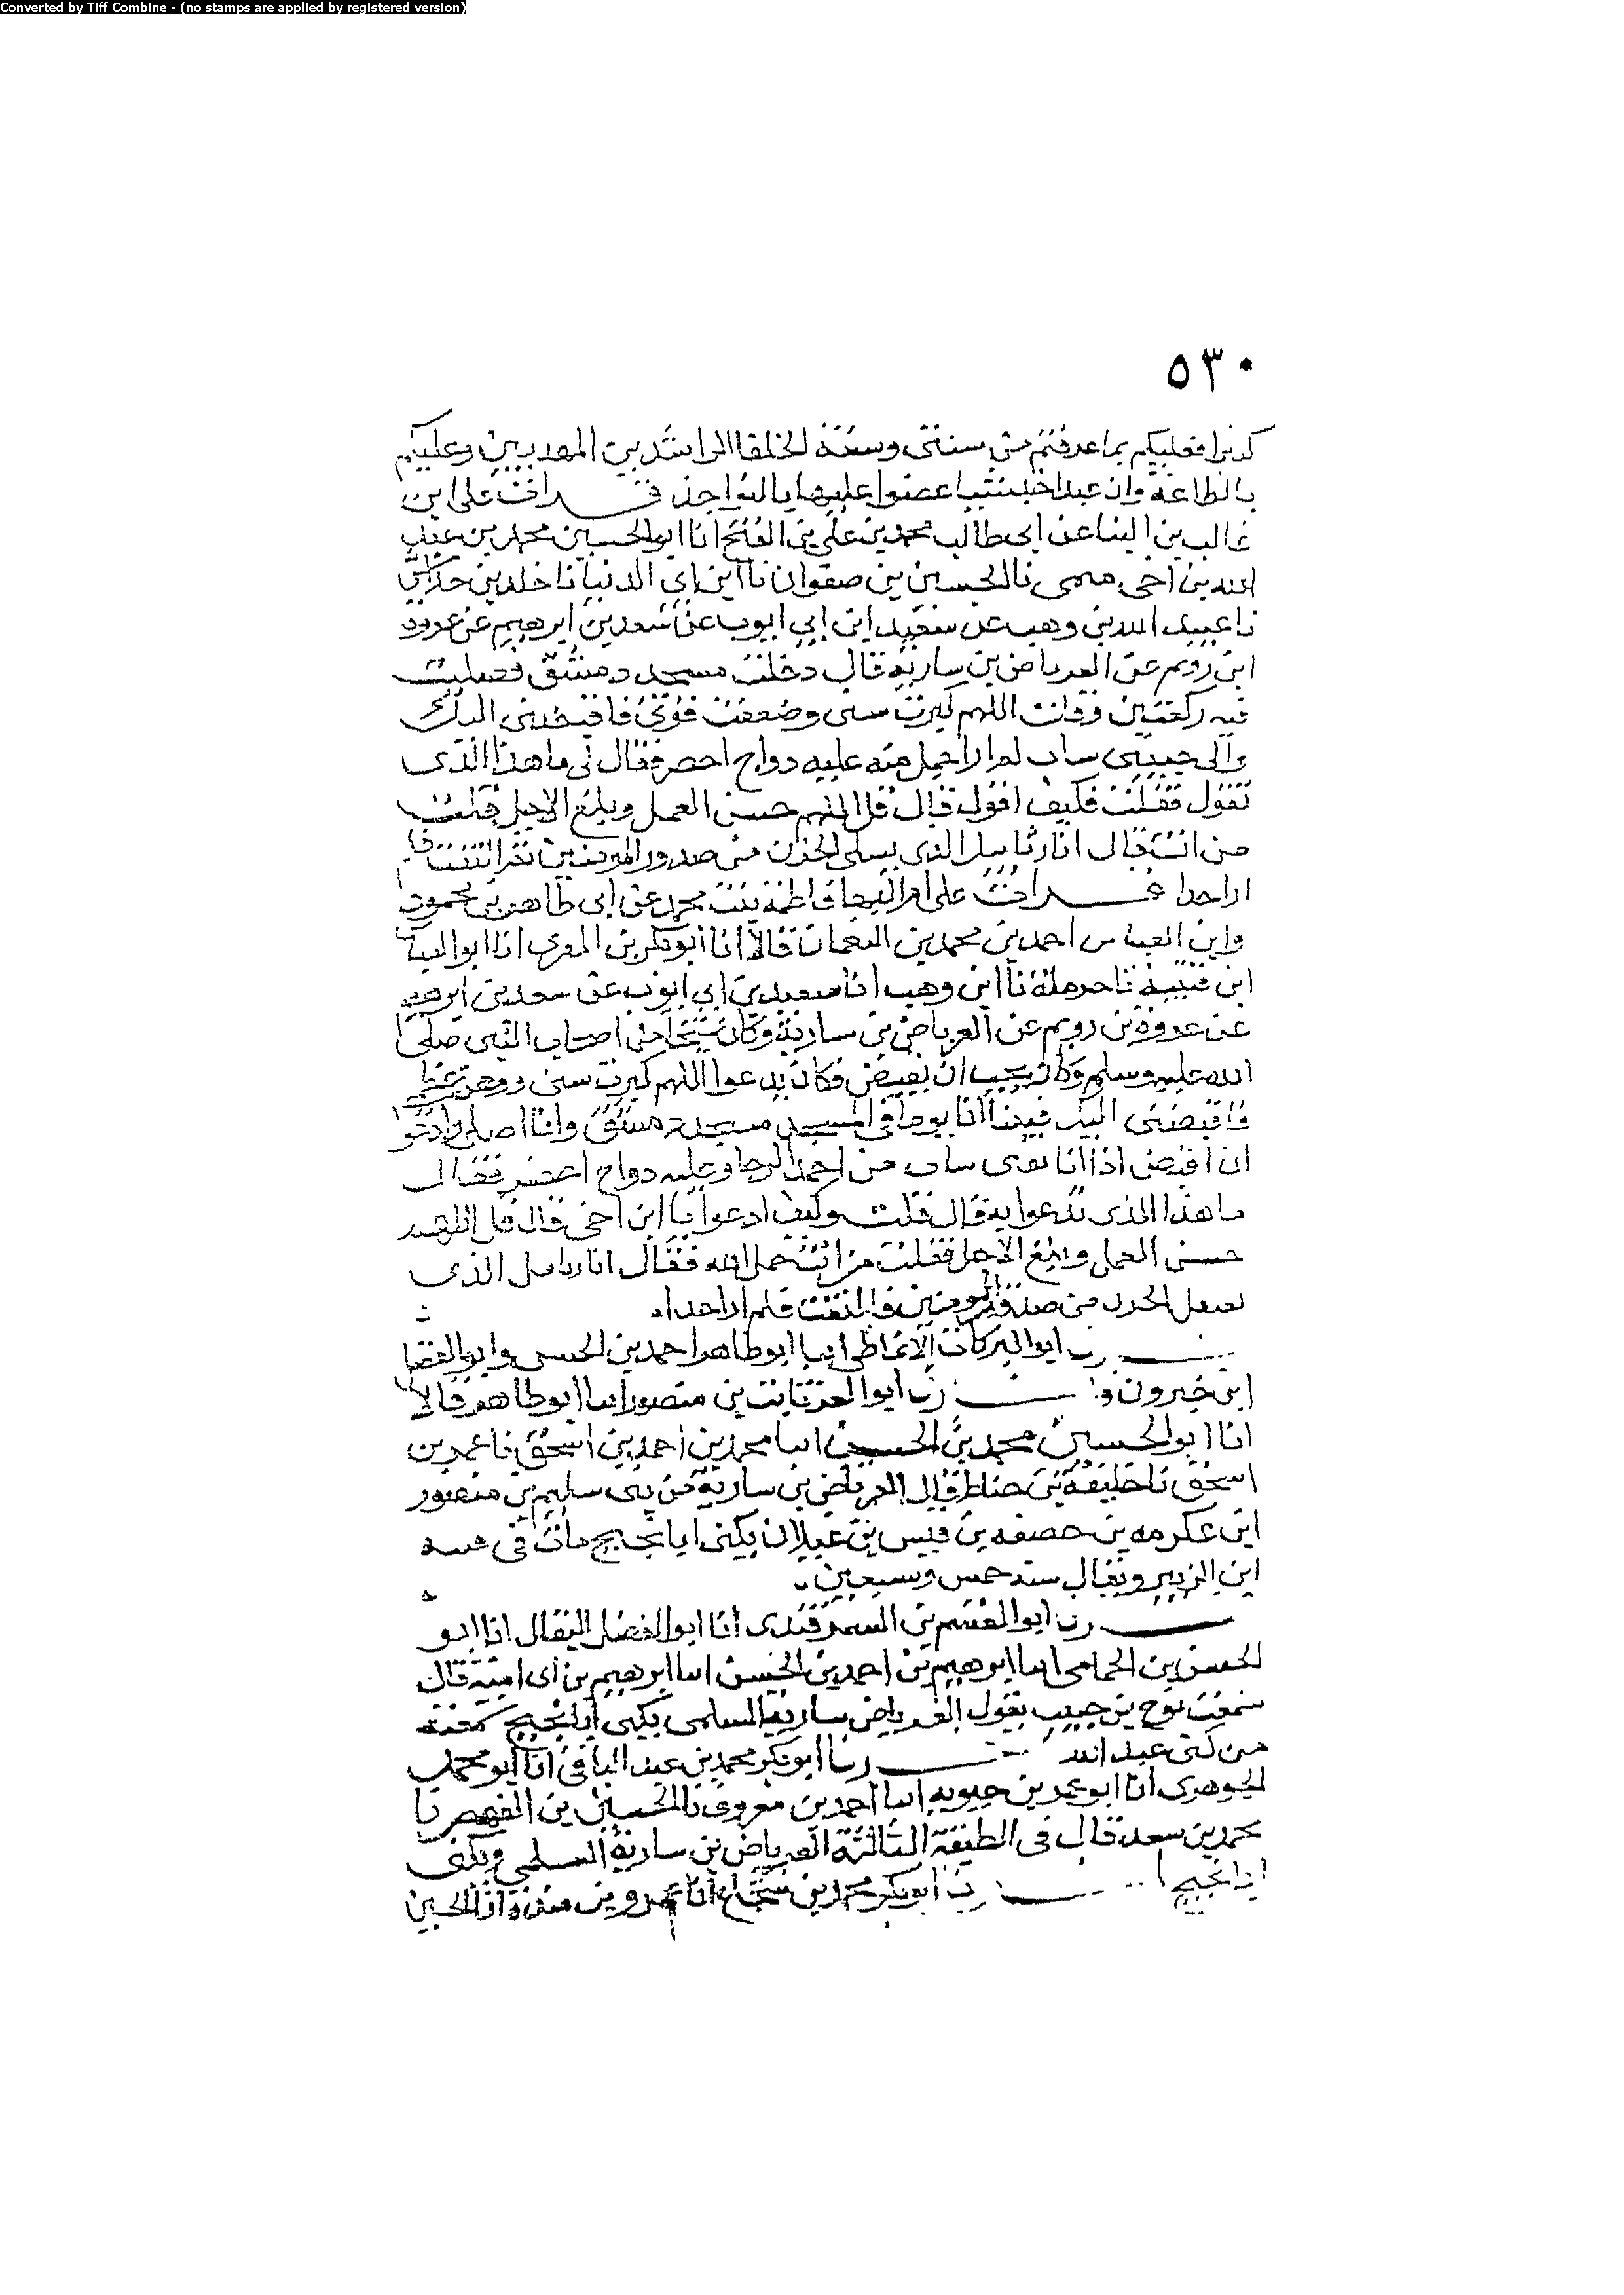 Converted by Tiff Combine - (no stamps are applied by registered version)
٥٣٠
كثيرا فعليكم بما عرفتم من سنتى وسنة الخلفا الراشدين المهديين وعليكم
بالطاعة وان عبدا حبشيا عضوا عليها بالنواجذ قرات على ابن
غالب بن البنا عن ابى طالب محمد بن على بن الفتح انا ابو الحسين محمد بن عبد
الله بن اخى ميمى نا الحسين بن صفوان نا ابن ابي الدنيا نا خلد بن خداش
نا عبد الله بن وهب عن سعيد ابن ابي ايوب عن سعد بن ابرهيم عن عروة
ابن رويم عن العرباض بن سارية قال دخلت مسجد دمشق فصليت
فيه ركعتين وقلت اللهم كبرت سنى وضعفت قوتي فاقبضنى اليك
والى جنبى ساب لم ار اجمل منه عليه دواج اخضر فقال لى ما هذا الذى
تقول فقلت فكيف اقول قال قل اللهم حسن العمل وبلغ الاجل قلت
من انت قال انا رثاييل الذى يسلى الحزن من صدور المومنين ثم التفت فلم
ار احدا قرات على ام البها فاطمة بنت محمد عن ابى طاهر بن محمود
وابن العباس احمد بن محمد بن النعمان قالا انا ابو بكر بن المقرى انا ابو العباس
ابن قتيبة نا حرملة نا ابن وهب انا سعيد بن ابي ايوب عن سعد بن ابرهيم
عن عروة بن رويم عن العرباض بن سارية وكان شيخا من اصحاب النبى صلى
الله عليه وسلم وكان يحب ان يقبض فكان يدعوا اللهم كبرت سنى ووهن عظمى
فاقبضنى اليك فبينا انا يوما فى المسجد مسجد دمشق وانا اصلى وادعوا
ان اقبض اذا انا بفتى ساب من اجمل الرجال وعليه دواج اخضر فقال
ما هذا الذى تدعوا به قال قلت وكيف ادعوا يا ابن اخى قال قل اللهم
حسن العمل وبلغ الاجل فقلت من انت رحمك الله فقال انا رتاييل الذى
يسل الحزن من صدور المومنين فالتفت فلم ار احدا
رنا ابو البركات الانماطى انبا ابو طاهر احمد بن الحسن وابو الفضل
ابن خيرون و رنا ابو العز ثابت بن منصور انبا ابو طاهر قالا
انا ابو الحسين محمد بن الحسن انبا محمد بن احمد بن اسحق نا عمر بن
اسحق نا خليفة بن خياط قال العرباض بن سارية من بنى سليم بن منصور
ابن عكرمه بن خصفه بن قيس بن عيلان يكنى ابا نجيح مات فى فتنة
ابن الزبير ويقال سنة خمس وسبعين
رنا ابو القسم بن السمرقندى انا ابو الفضل البقال انا ابو
الحسن بن الحمامى انبا ابرهيم بن احمد بن الحسن انبا ابرهيم بن ابى امية قال
سمعت نوح بن حبيب يقول العرباض بن سارية السلمى يكنى ابا نجيح
من كنى عبد الله رنا ابو بكر محمد بن عبد الباقى انا ابو محمد
الجوهرى انا ابو عمر بن حيويه انبا احمد بن معروف نا الحسين بن الفهم نا
محمد بن سعد قال فى الطبقة الثالثة العرباض بن سارية السلمى ويكنى
ابا نجيح رنا ابو بكر محمد بن شجاع انا عمرو بن مندة انا الحسن